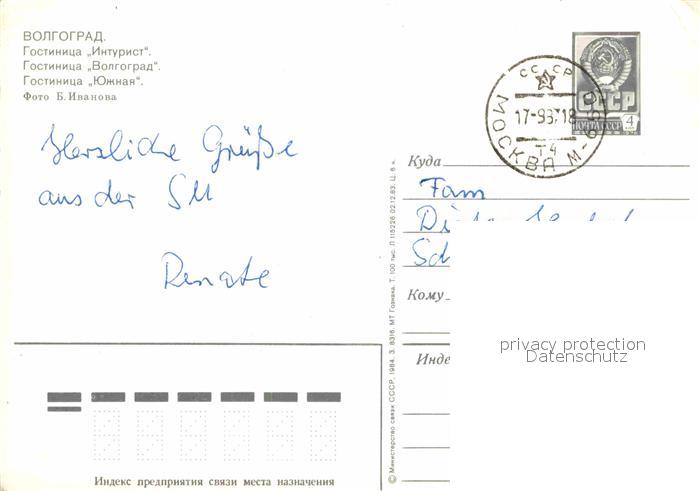 ВОЛГОГРАД.
Гостиница „Интурист".
Гостиница „Волгоград".
Гостиница „Южная".
Фото Б. Иванова
Herzliche Grüße
aus der SU
Renate
СССР
17-9
МОСКВА М-
СССР
ПОЧТА СССР 4
Куда
Fam
Кому
privacy protection
Datenschutz
Инде
Индекс предприятия связи места назначения
© Министерство связи СССР, 1984. З. 8316. МТ Гознака. Т. 100 тыс. Л 115226 02.12.83. Ц. 6 к.